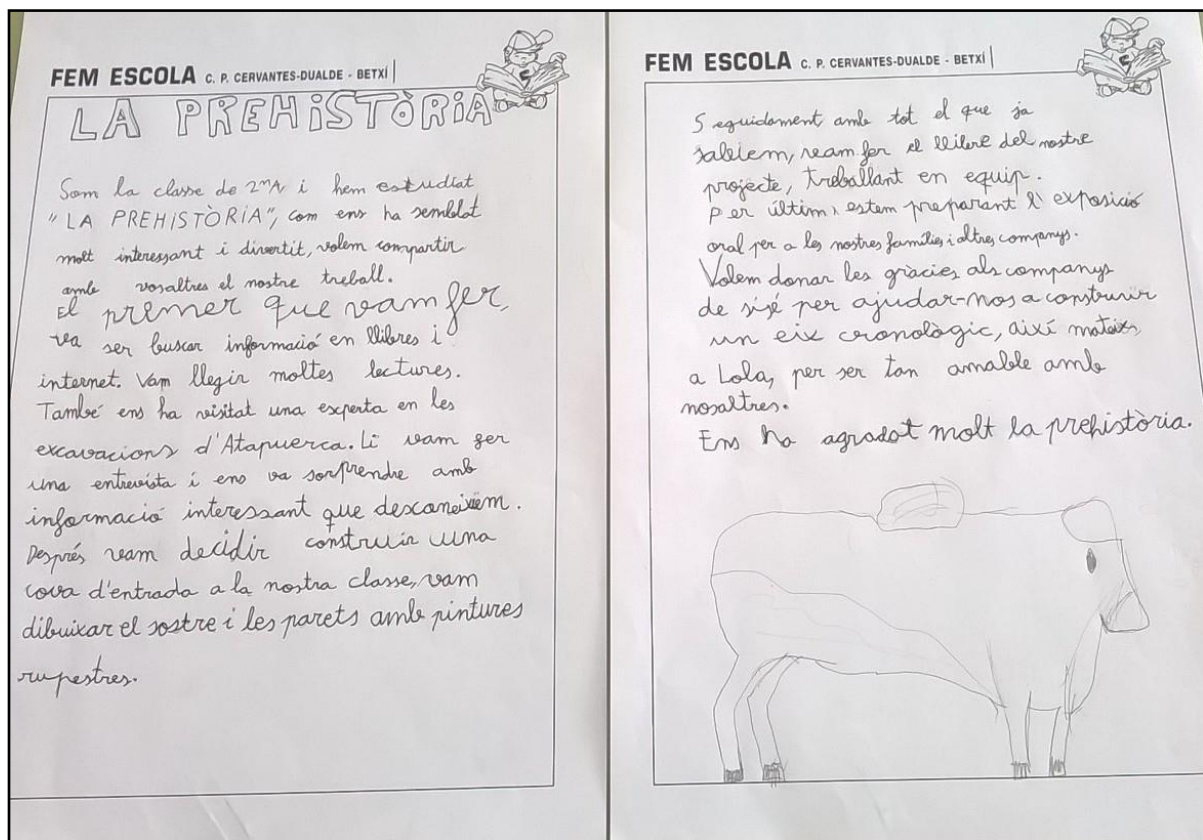 FEM ESCOLA C. P. CERVANTES-DUALDE - BETXÍ
LA PREHISTÒRIA
Som la classe de 2nA, i hem estudiat
"LA PREHISTÒRIA", com ens ha semblat
molt interessant i divertit, volem compartir
amb vosaltres el nostre treball.
El premer que vam fer,
va ser buscar informació en llibres i
internet. Vam llegir moltes lectures.
També ens ha visitat una experta en les
excavacions d'Atapuerca. Li vam fer
una entrevista i ens va sorprendre amb
informació interessant que desconeixiem.
Després vam decidir construir una
cova d'entrada a la nostra classe, vam
dibuixar el sostre i les parets amb pintures
rupestres.
FEM ESCOLA C. P. CERVANTES-DUALDE - BETXÍ
Seguidament amb tot el que ja
sabiem, vam fer el llibre del nostre
projecte, treballant en equip.
Per últim, estem preparant l'exposició
oral per a les nostres famílies i altres companys.
Volem donar les gràcies als companys
de sisé per ajudar-nos a construir
un eix cronològic, així mateix,
a Lola, per ser tan amable amb
nosaltres.
Ens ha agradat molt la prehistòria.